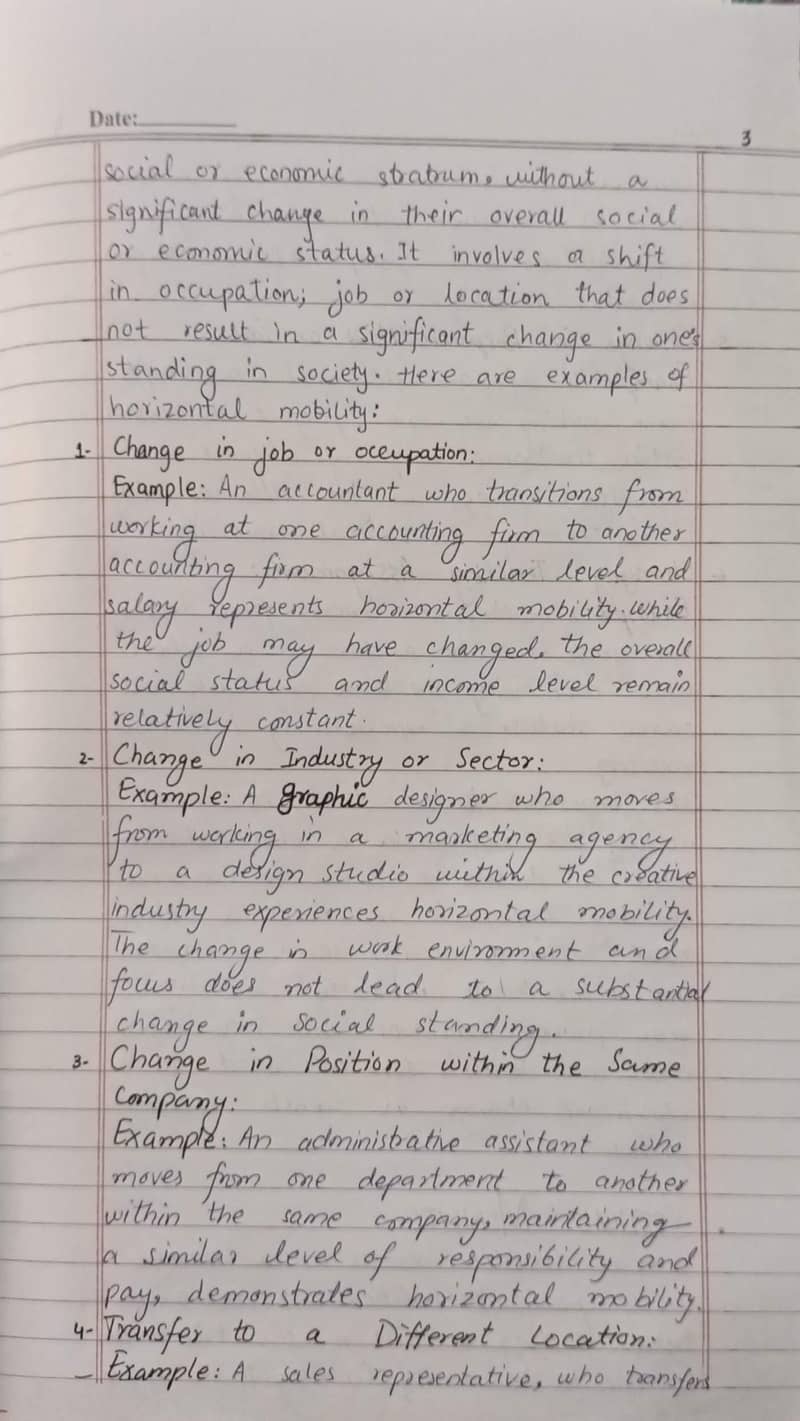 Date:
3
social or economic stratum, without a
significant change in their overall social
or economic status. It involves a shift
in occupation; job or location that does
not result in a significant change in one's
standing in society. Here are examples of
horizontal mobility:
1- Change in job or occupation:
Example: An accountant who transitions from
working at one accounting firm to another
accounting firm at a similar level and
salary represents horizontal mobility. While
the job may have changed, the overall
social status and income level remain
relatively constant.
2- Change in Industry or Sector:
Example: A graphic designer who moves
from working in a marketing agency
to a design studio within the creative
industry experiences horizontal mobility.
The change in work environment and
focus does not lead to a substantial
change in social standing.
3- Change in Position within the Same
Company:
Example: An administrative assistant who
moves from one department to another
within the same company, maintaining
a similar level of responsibility and
pay, demonstrates horizontal mobility.
4- Transfer to a Different Location:
Example: A sales representative, who transfers